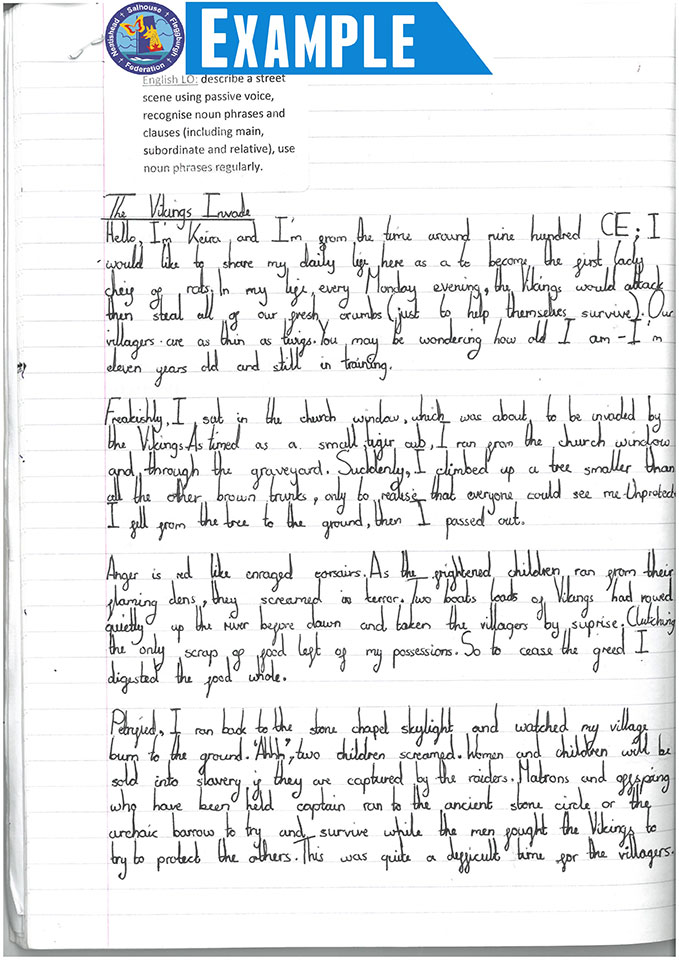 Neatishead Salhouse Fleggburgh
Federation
EXAMPLE
English LO: describe a street
scene using passive voice,
recognise noun phrases and
clauses (including main,
subordinate and relative), use
noun phrases regularly.
The Vikings Invade
Hello, I'm Keira and I'm from the time around nine hundred CE; I
would like to share my daily life here as a to become the first lady
cheif of rats. In my life every Monday evening, the Vikings would attack
then steal all of our fresh crumbs (just to help themselves survive). Our
villagers are as thin as twigs. You may be wondering how old I am - I'm
eleven years old and still in training.
Freakishly, I sat in the church window, which was about to be invaded by
the Vikings. As timed as a small tiger cub, I ran from the church window
and through the graveyard. Suddenly, I climbed up a tree smaller than
all the other brown trunks, only to realise that everyone could see me. Unprotected
I fell from the tree to the ground, then I passed out.
Anger is red like enraged corsairs. As the frightened children ran from their
flaming dens, they screamed in terror. Two boats loads of Vikings had rowed
quietly up the river before dawn and taken the villagers by suprise. Clutching
the only scrap of food left of my possessions. So to cease the greed I
digested the food whole.
Petryied, I ran back to the stone chapel skylight and watched my village
burn to the ground. "Ahhh", two children screamed. Women and children will be
sold into slavery if they are captured by the raiders. Matrons and offspring
who have been held captain ran to the ancient stone circle or the
archaic barrow to try and survive while the men fought the Vikings to
try to protect the others. This was quite a difficult time for the villagers.